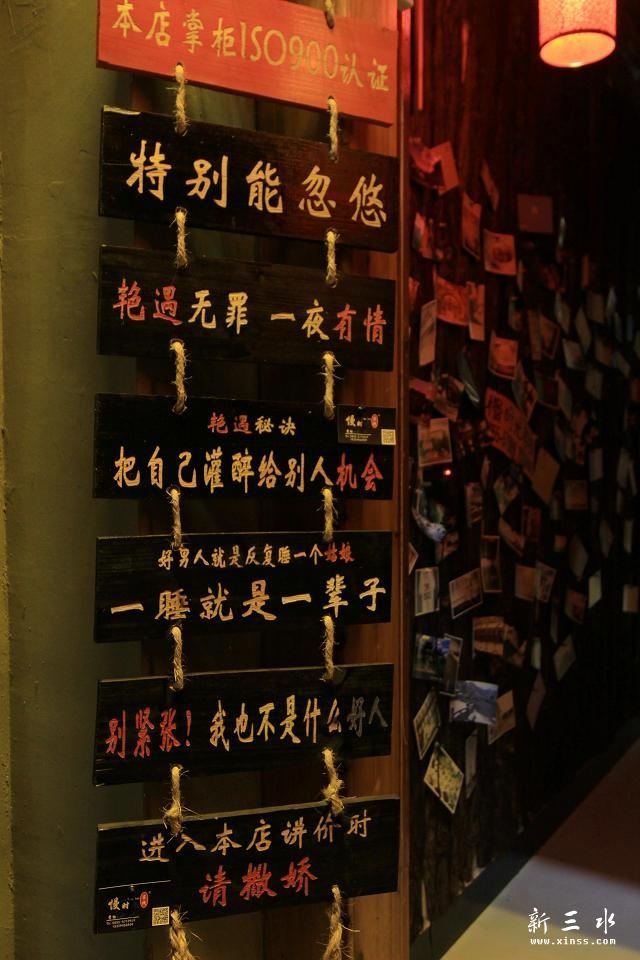 本店掌柜ISO900认证
特别能忽悠
艳遇无罪 一夜有情
艳遇秘诀
慢时
把自己灌醉给别人机会
好男人就是反复睡一个姑娘
一睡就是一辈子
别紧张！我也不是什么好人
进入本店讲价时
请撒娇
慢时
新三水
www.xinss.com